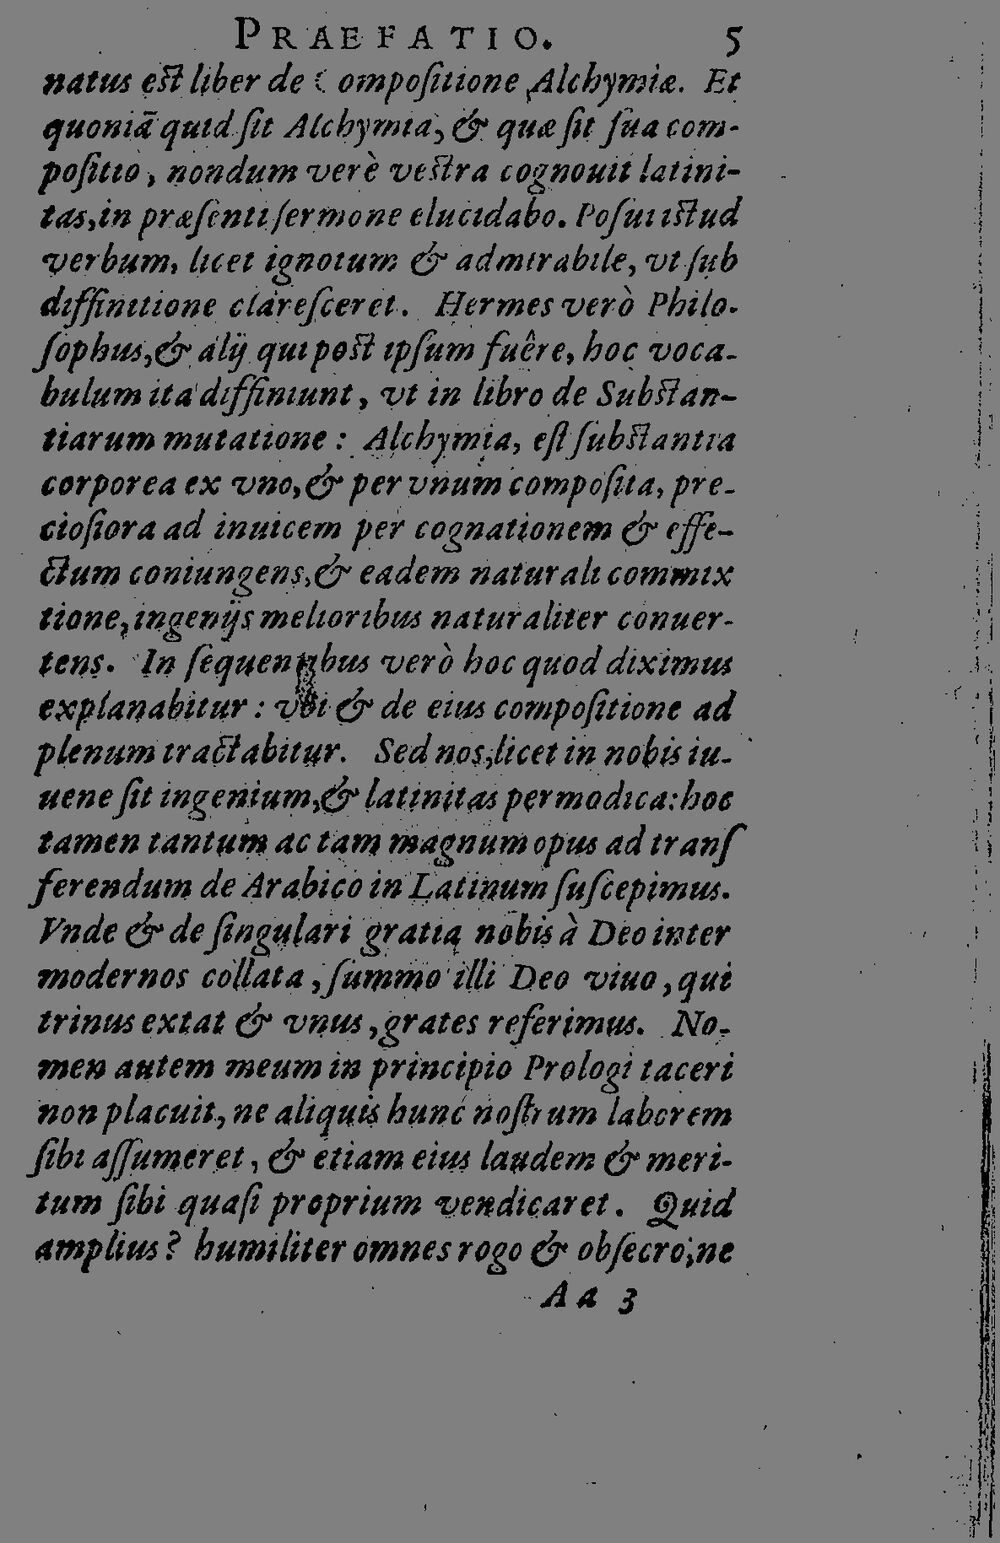 PRAEFATIO. 5
natus est liber de Compositione Alchymiæ. Et
quoniã quid ſit Alchymia, & quæ ſit ſua com-
poſitio, nondum verè veſtra cognouit latini-
tas, in præſenti ſermone elucidabo. Poſui iſtud
verbum, licet ignotum & admirabile, vt ſub
diffinitione clareſceret. Hermes verò Philo-
ſophus, & alij qui poſt ipſum fuêre, hoc voca-
bulum ita diffiniunt, vt in libro de Subſtan-
tiarum mutatione: Alchymia, eſt ſubſtantia
corporea ex vno, & per vnum compoſita, pre-
cioſiora ad inuicem per cognationem & effe-
ctum coniungens, & eadem naturali commix
tione, ingenijs melioribus naturaliter conuer-
tens. In ſequentibus verò hoc quod diximus
explanabitur: vbi & de eius compoſitione ad
plenum tractabitur. Sed nos, licet in nobis iu-
uene ſit ingenium, & latinitas permodica: hoc
tamen tantum ac tam magnum opus ad tranſ
ferendum de Arabico in Latinum ſuſcepimus.
Vnde & de ſingulari gratia nobis à Deo inter
modernos collata, ſummo illi Deo viuo, qui
trinus extat & vnus, grates referimus. No-
men autem meum in principio Prologi taceri
non placuit, ne aliquis hunc noſtrum laborem
ſibi aſſumeret, & etiam eius laudem & meri-
tum ſibi quaſi proprium vendicaret. Quid
amplius? humiliter omnes rogo & obſecro, ne
Aa 3